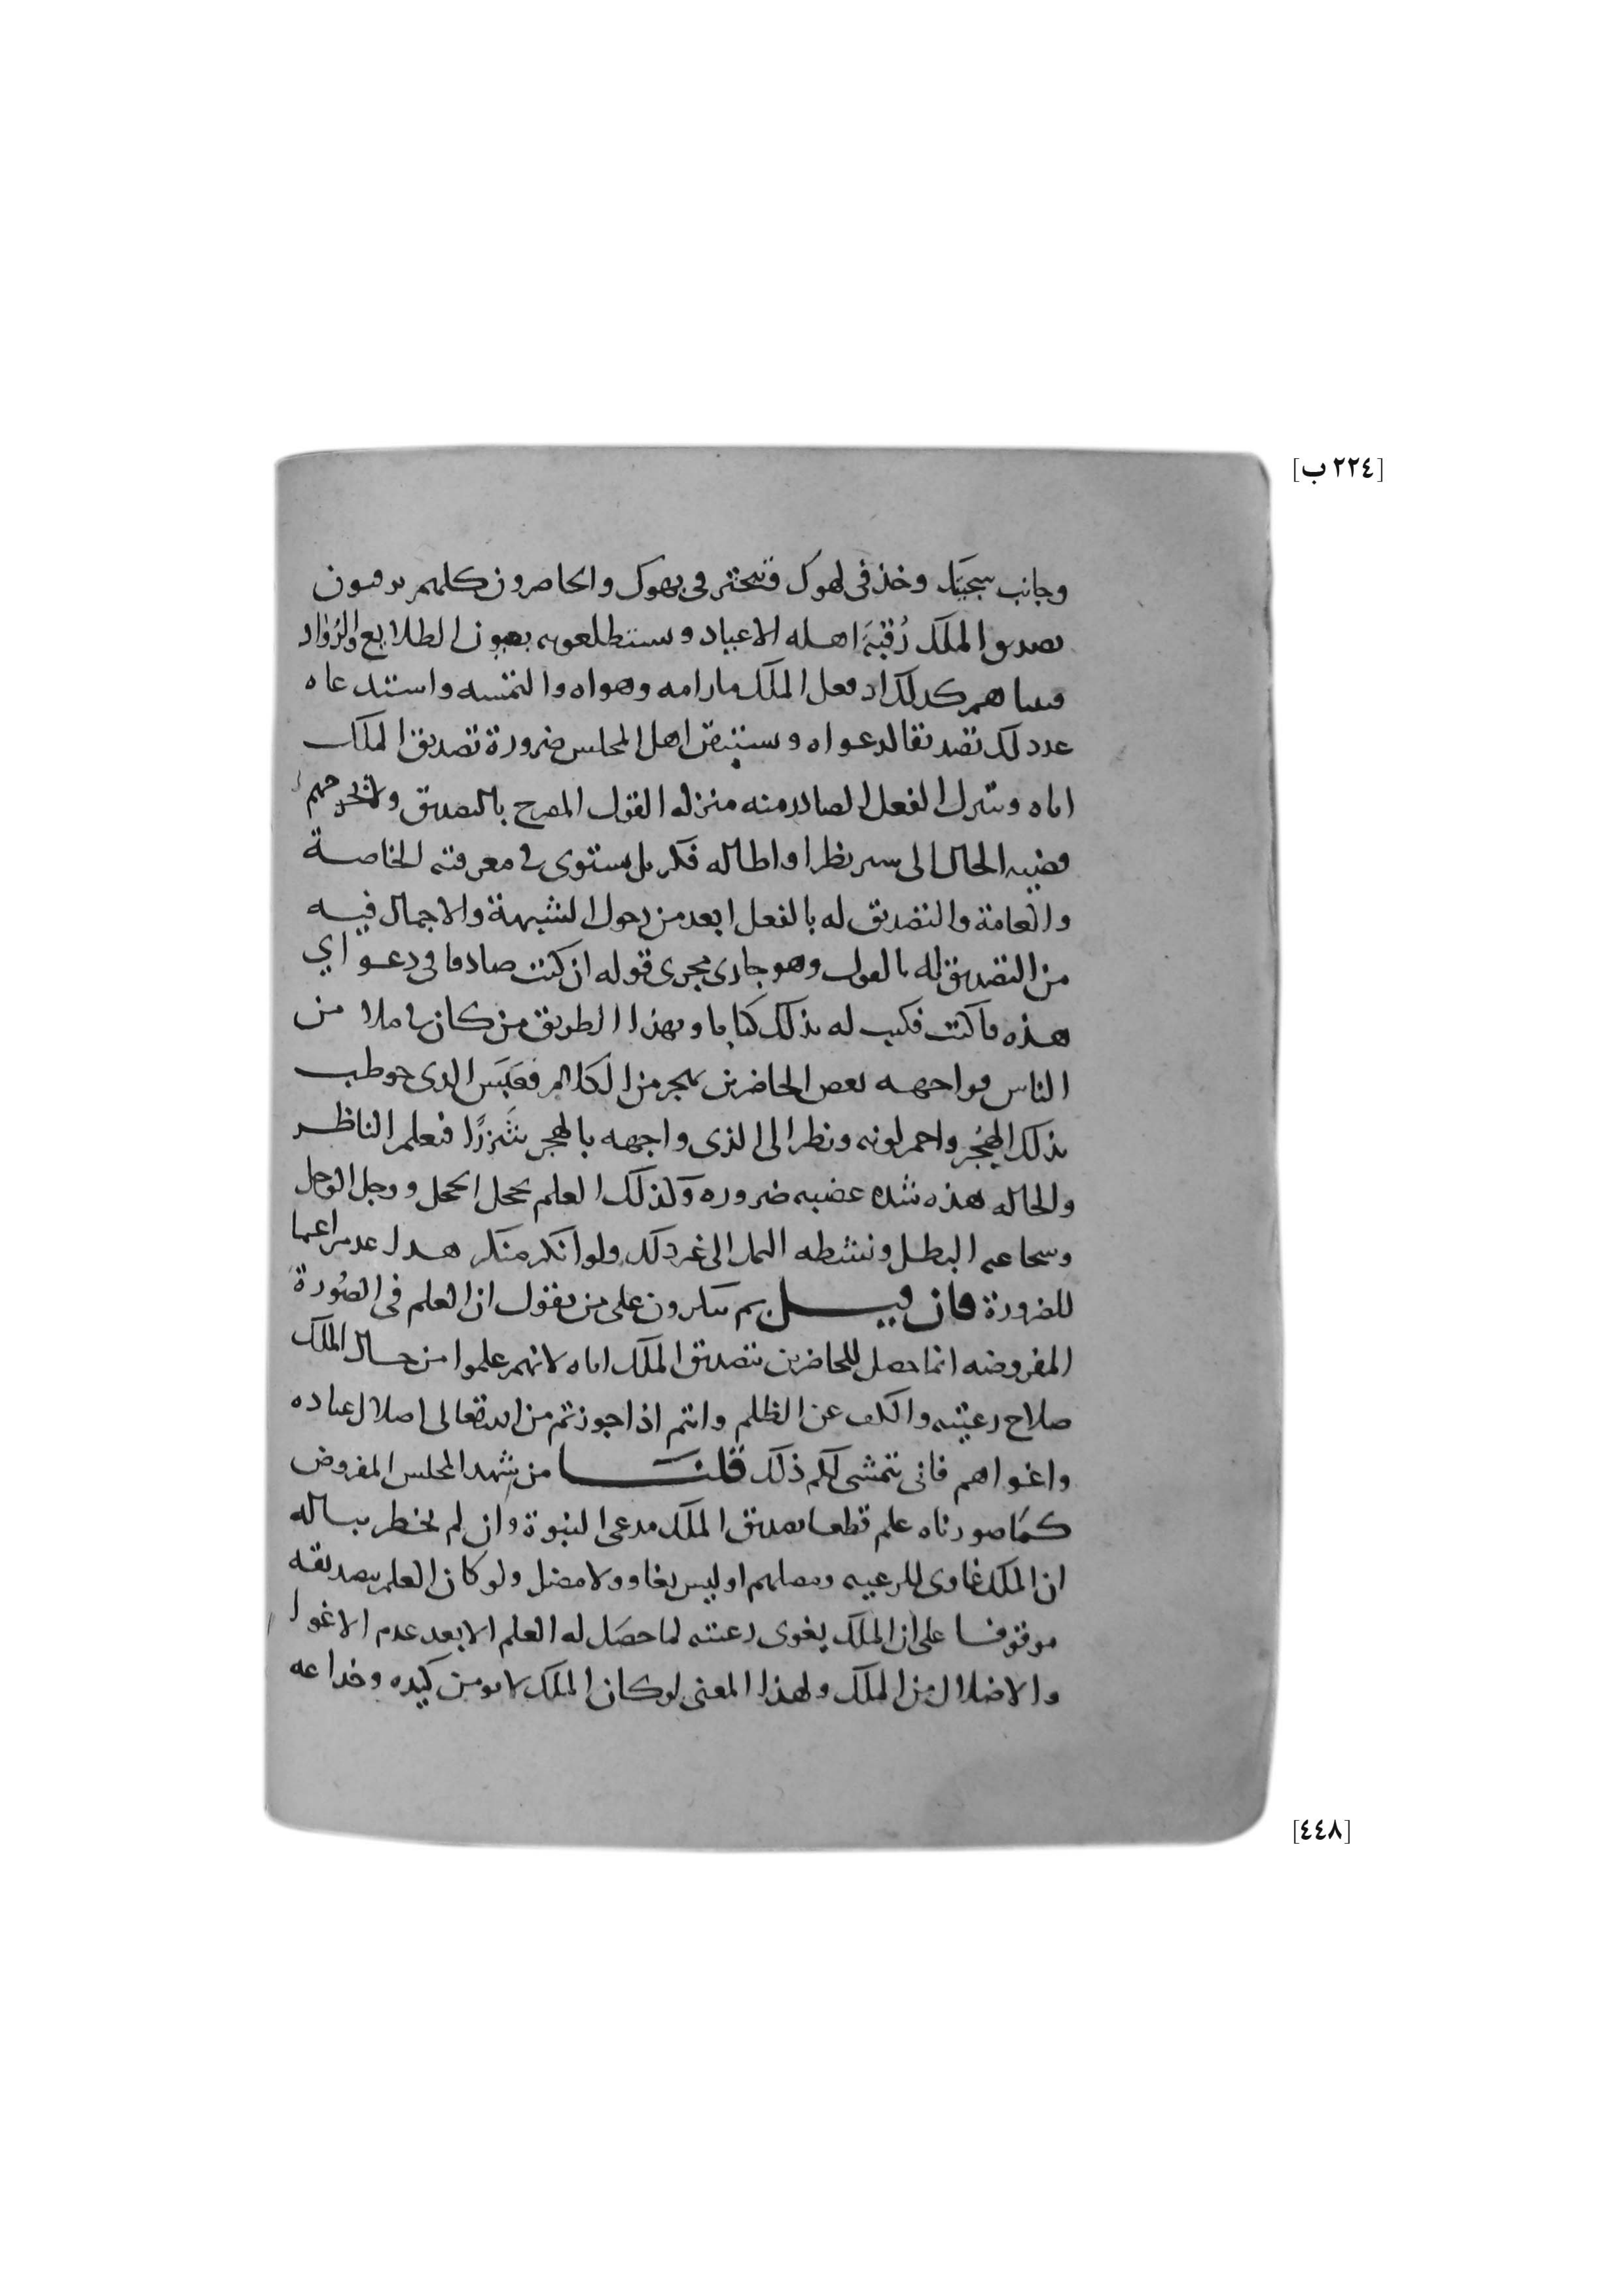 [٢٢٤ ب]
وجانب سجيتك وخذ في لهوك وتبختر في بهوك والحاضرون كلهم يرقبون
تصديق الملك رُقْبَةَ اهله الاعياد ويستطلعونه بعيون الطلايع والرُوّاد
فبينا هم كذلك اذ فعل الملك ما رامه وهواه والتمسه واستدعاه
عد ذلك تصديقا لدعواه ويستيقن اهل المجلس ضرورة تصديق الملك
اياه وينزل الفعل الصادر منه منزلة القول المصرح بالتصديق ولا تخرجهم
قضية الحال الى سبر نظر او اطالة فكر بل يستوي في معرفته الخاصة
والعامة والتصديق له بالفعل ابعد من دخول الشبهة والاجمال فيه
من التصديق له بالقول وهو جاري مجرى قوله ان كنت صادقا في دعواي
هذه فاكتب فكتب له بذلك كتابا وبهذا الطريق من كان في ملا من
الناس فواجهه بعض الحاضرين بهجر من الكلام فعَبَس الذي خوطب
بذلك الهُجْر واحمر لونه ونظر الى الذي واجهه بالهجر شَزْرًا فيعلم الناظر
والحالة هذه شدة غضبه ضرورة وكذلك العلم بخجل الخجل ووجل الوجل
وشجاعة البطل ونشطه الثمل الى غير ذلك ولو انكر منكر هذا عد مراغما
للضرورة فان قيل بم تنكرون على من يقول ان العلم في الصُورة
المفروضه انما حصل للحاضرين بتصديق الملك اياه لانهم علموا من حال الملك
صلاح رعيته والكف عن الظلم وانتم اذا جوزتم من الله تعالى اضلال عباده
واغواهم فانى يتمشى لكم ذلك قلنا من شهد المجلس المفروض
كما صورناه علم قطعا تصديق الملك مدعى النبوة وان لم يخطر بباله
ان الملك غاوي للرعية ومضلهم او ليس بغاو ولا مضل ولو كان العلم بتصديقه
موقوفا على ان الملك يغوى رعيته لما حصَل له العلم الا بعد عدم الاغوا
والاضلال من الملك ولهذا المعنى لو كان الملك لا يومن كيده وخداعه
[٤٤٨]